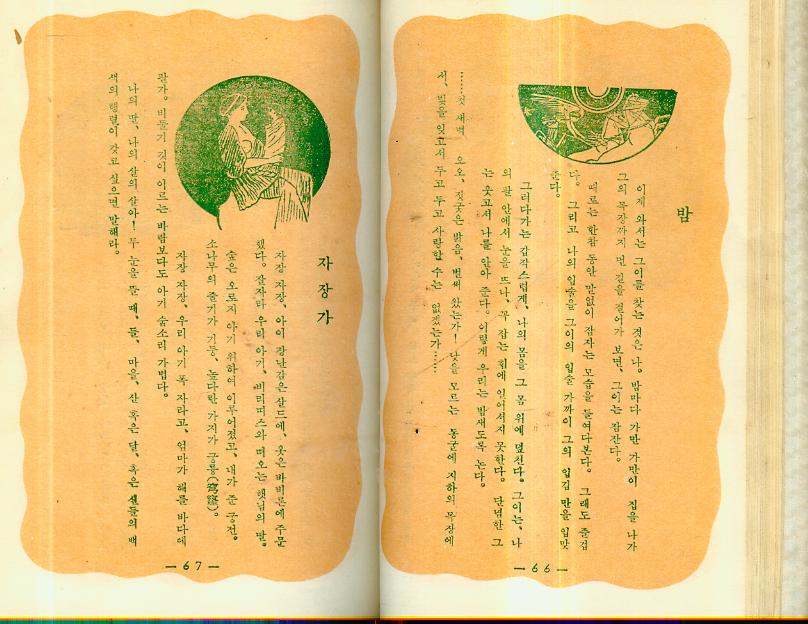 밤
이제 와서는 그이를 찾는 것은 나。 밤마다 가만 가만이 집을 나가
그의 목장까지 먼 길을 걸어가 보면、 그이는 잠잔다。
때로는 한참 동안 말없이 잠자는 모습을 들여다본다。 그래도 즐겁
다。 그리고 나의 입술을 그이의 입술 가까이 그의 입김 만을 입맞
춘다。
그러다가는 갑작스럽게、 나의 몸을 그 몸 위에 덮친다。 그이는、 나
의 팔 안에서 눈을 뜨나、 꼭 잡는 힘에 일어서지 못한다。 단념한 그
는 웃고서 나를 안아 준다。 이렇게 우리는 밤새도록 논다。
……첫 새벽 오오、 짓궂은 밝음、 벌써 왔는가! 낮을 모르는 동굴에 지하의 목장에
서、 빛을 잊고서 두고 두고 사랑할 수는 없겠는가……
— 66 —
자장가
자장 자장、 아이 장난감은 살드에、 옷은 바비론에 주문
했다。 잘자라 우리 아기、 삐리띠스와 떠오는 햇님의 딸。
숲은 오로지 아기 위하여 이루어졌고、 내가 준 궁전。
소나무의 줄기가 기둥、 높다란 가지가 궁륭(穹窿)。
자장 자장、 우리 아기 폭 자라고、 엄마가 해를 바다에
팔가。 비둘기 깃이 이르는 바람보다도 아기 숨소리 가볍다。
나의 딸、 나의 살의 살아! 두 눈을 뜰 때、 들、 마을、 산 혹은 달、 혹은 신들의 백
색의 행렬이 갖고 싶으면 말해라。
— 67 —